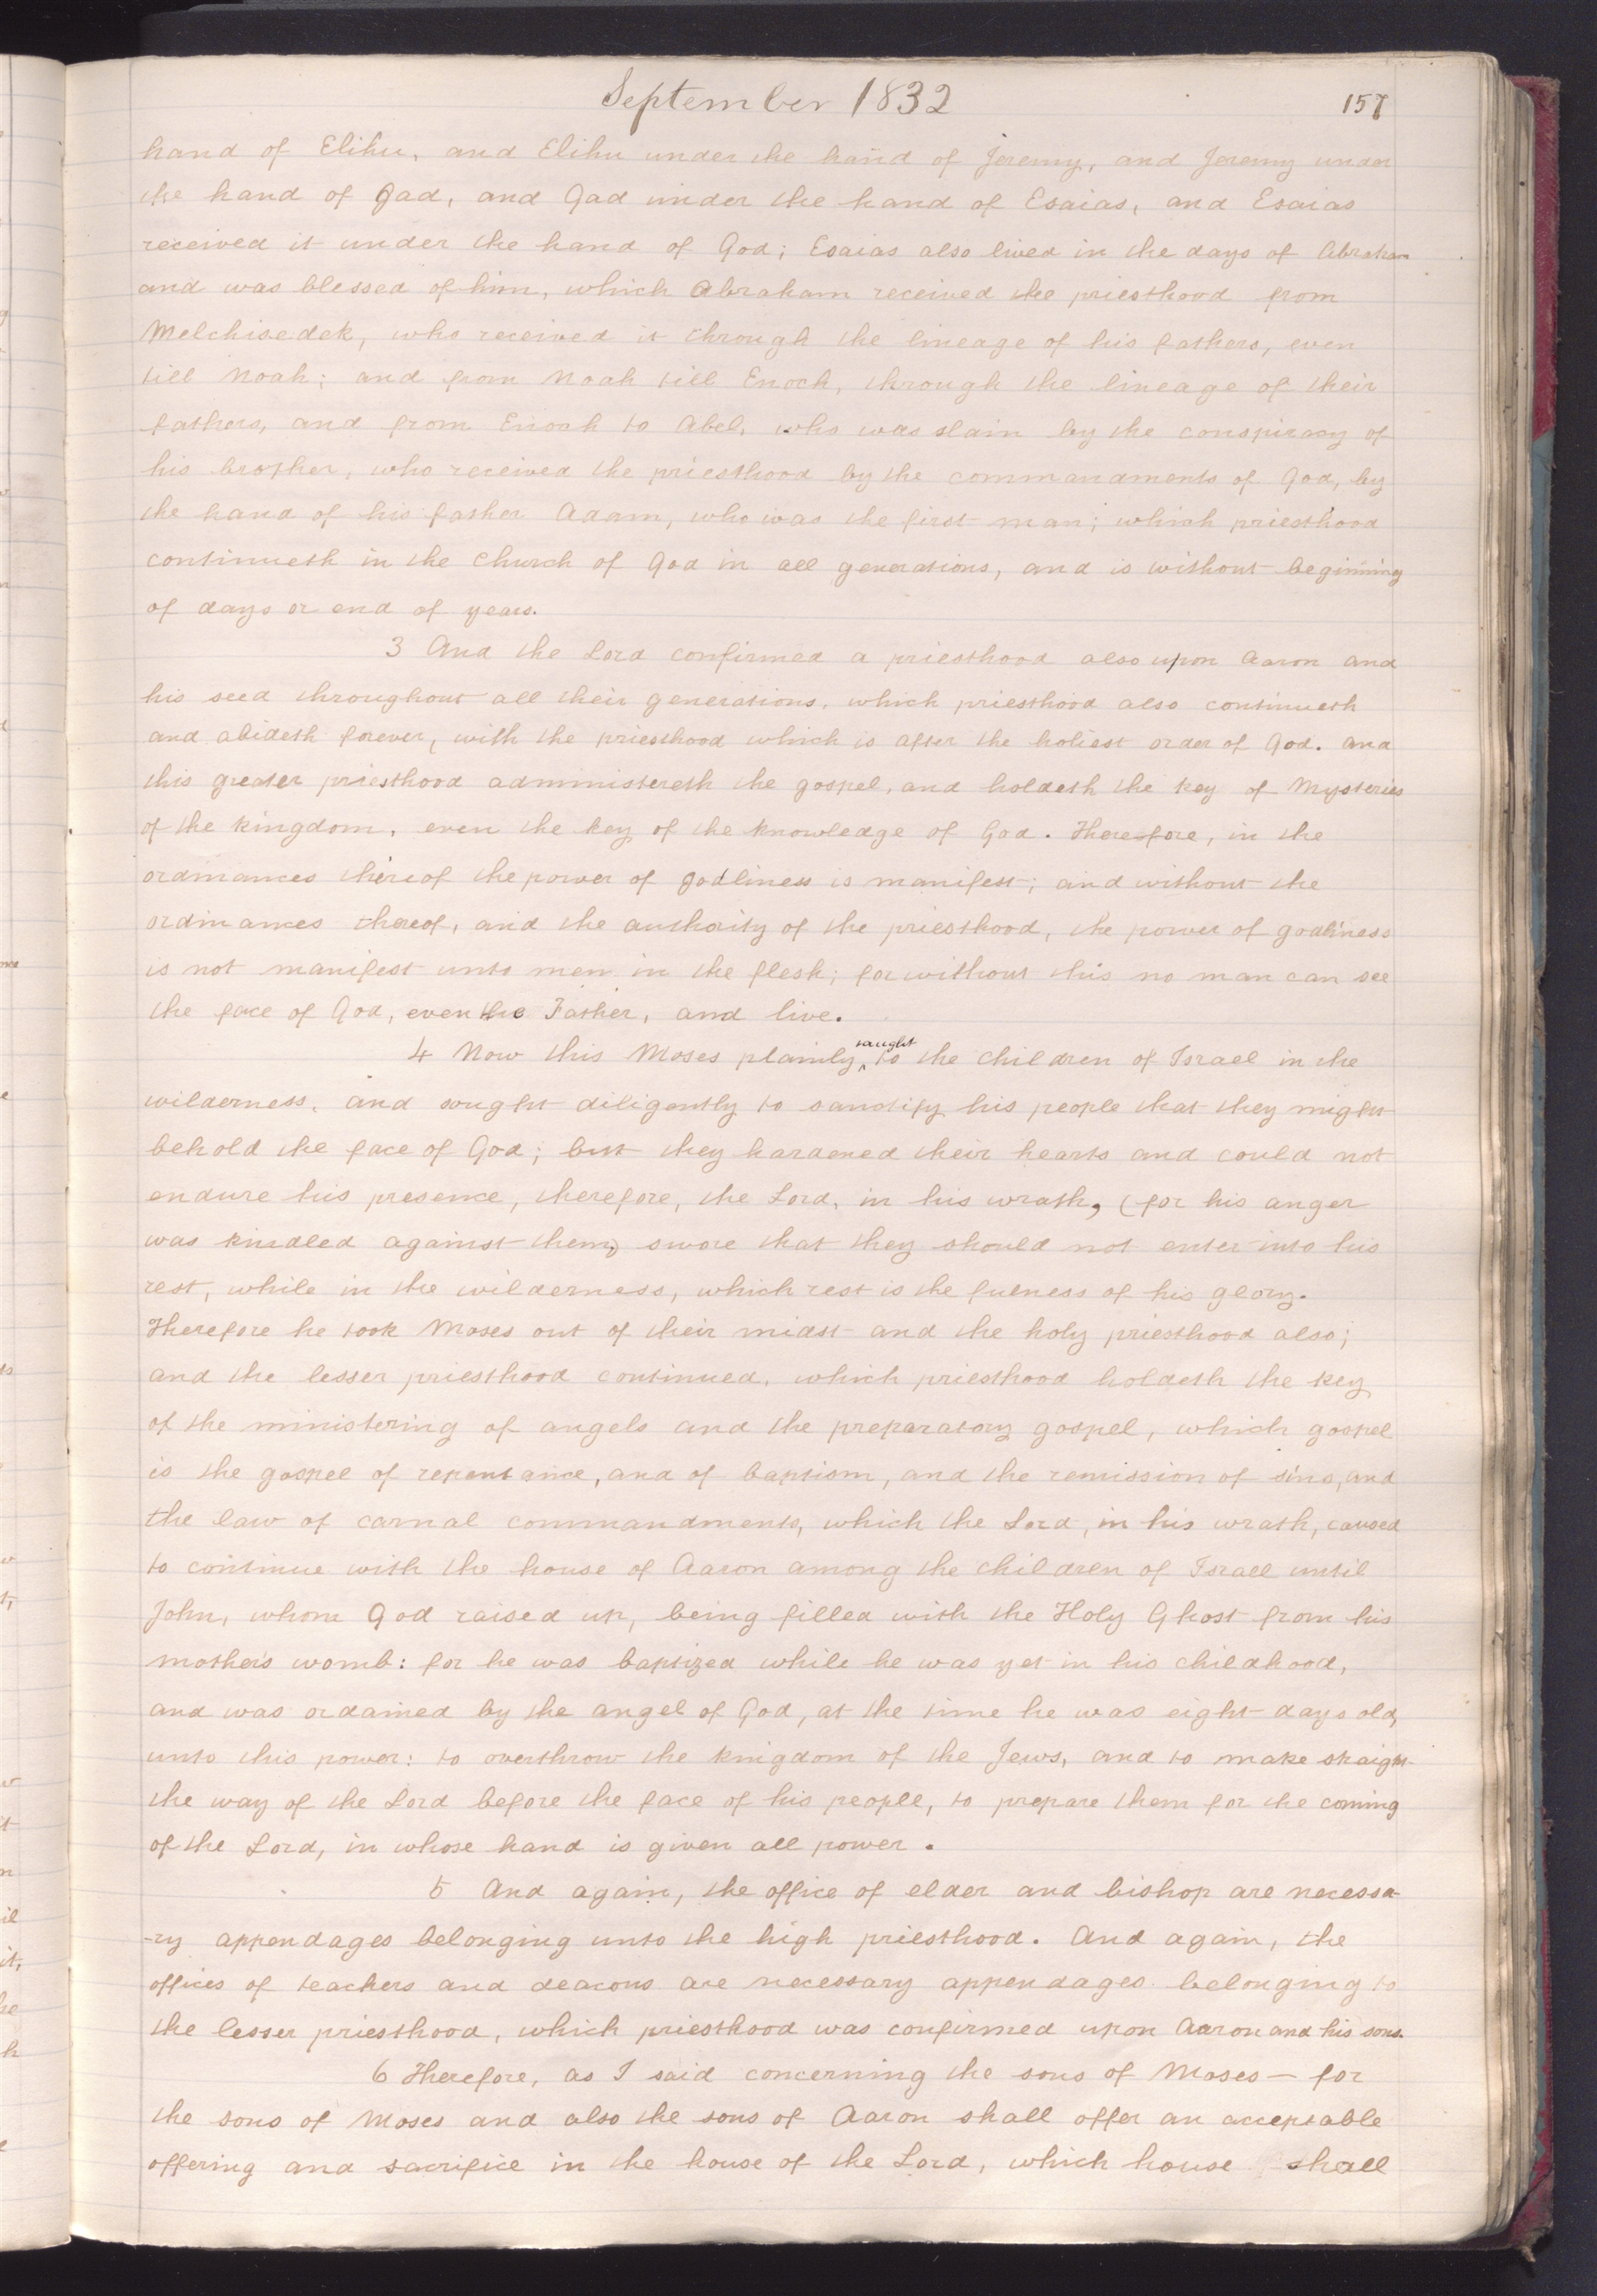 September 1832
157
hand of Elihu, and Elihu under the hand of Jeremy, and Jeremy under
the hand of Gad, and Gad under the hand of Esaias, and Esaias
received it under the hand of God; Esaias also lived in the days of Abraham
and was blessed of him, which Abraham received the priesthood from
Melchisedek, who received it through the lineage of his fathers, even
till Noah; and from Noah till Enoch, through the lineage of their
fathers, and from Enoch to Abel, who was slain by the conspiracy of
his brother, who received the priesthood by the commandments of God, by
the hand of his father Adam, who was the first man; which priesthood
continueth in the church of God in all generations, and is without beginning
of days or end of years.
3 And the Lord confirmed a priesthood also upon Aaron and
his seed throughout all their generations, which priesthood also continueth
and abideth forever, with the priesthood which is after the holiest order of God. And
this greater priesthood administereth the gospel, and holdeth the key of Mysteries
of the kingdom, even the key of the knowledge of God. Therefore, in the
ordinances thereof the power of godliness is manifest; and without the
ordinances thereof, and the authority of the priesthood, the power of godliness
is not manifest unto men in the flesh; for without this no man can see
the face of God, even the Father, and live.
4 Now this Moses plainly taught to the children of Israel in the
wilderness, and sought diligently to sanctify his people that they might
behold the face of God; but they hardened their hearts and could not
endure his presence, therefore, the Lord, in his wrath, (for his anger
was kindled against them) swore that they should not enter into his
rest, while in the wilderness, which rest is the fulness of his glory.
Therefore he took Moses out of their midst and the holy priesthood also;
and the lesser priesthood continued, which priesthood holdeth the key
of the ministering of angels and the preparatory gospel, which gospel
is the gospel of repentance, and of baptism, and the remission of sins, and
the law of carnal commandments, which the Lord, in his wrath, caused
to continue with the house of Aaron among the children of Israel until
John, whom God raised up, being filled with the Holy Ghost from his
mother's womb: for he was baptized while he was yet in his childhood,
and was ordained by the angel of God, at the time he was eight days old,
unto this power: to overthrow the kingdom of the Jews, and to make straight
the way of the Lord before the face of his people, to prepare them for the coming
of the Lord, in whose hand is given all power.
5 And again, the office of elder and bishop are necessa-
-ry appendages belonging unto the high priesthood. And again, the
offices of teachers and deacons are necessary appendages belonging to
the lesser priesthood, which priesthood was confirmed upon Aaron and his sons.
6 Therefore, as I said concerning the sons of Moses — for
the sons of Moses and also the sons of Aaron shall offer an acceptable
offering and sacrifice in the house of the Lord, which house shall